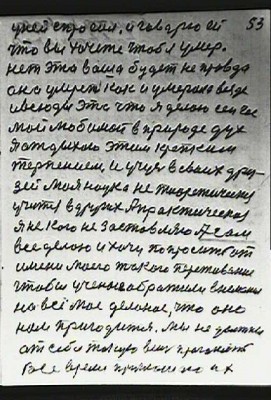 у ней спросил, и говорю ей 53
что вы хочете чтоб я умер.
нет это ваша будет не правда
она умрет как и умерала везде
и всюду Это что я делаю сейчас
мой любимой в природе дух
Я отдыхаю этим крепким
терпением, и учус в своих дру-
зей моя наука не теоретическая
учится в других А практическая
я не кого не заставляю А сам
все делаю и хочу попросить от
имени моего такого
чтобы ученые обратили внимание
на всё мое делание, что оно
нам пригодится. мы не должны
от себя такую вещь прогонять
все время на их